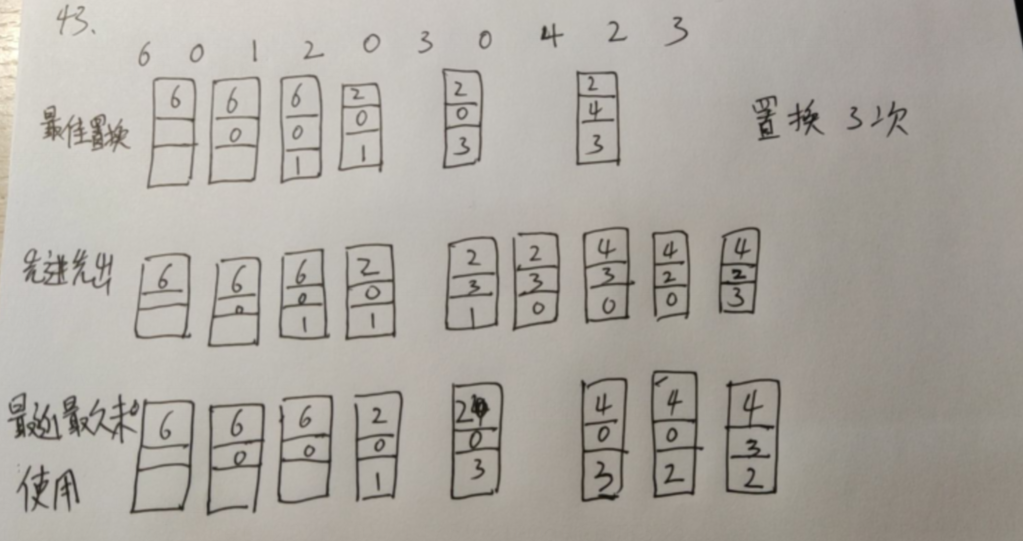 43.
6 0 1 2 0 3 0 4 2 3
最佳置换
6 6 6 2 2 2
0 0 0 0 4
1 1 3 3
置换 3次
先进先出
6 6 6 2 2 2 4 4 4
0 0 0 3 3 3 2 2
1 1 1 0 0 0 3
最近最久未
使用
6 6 6 2 2 4 4 4
0 0 0 0 0 0 3
1 3 3 2 2